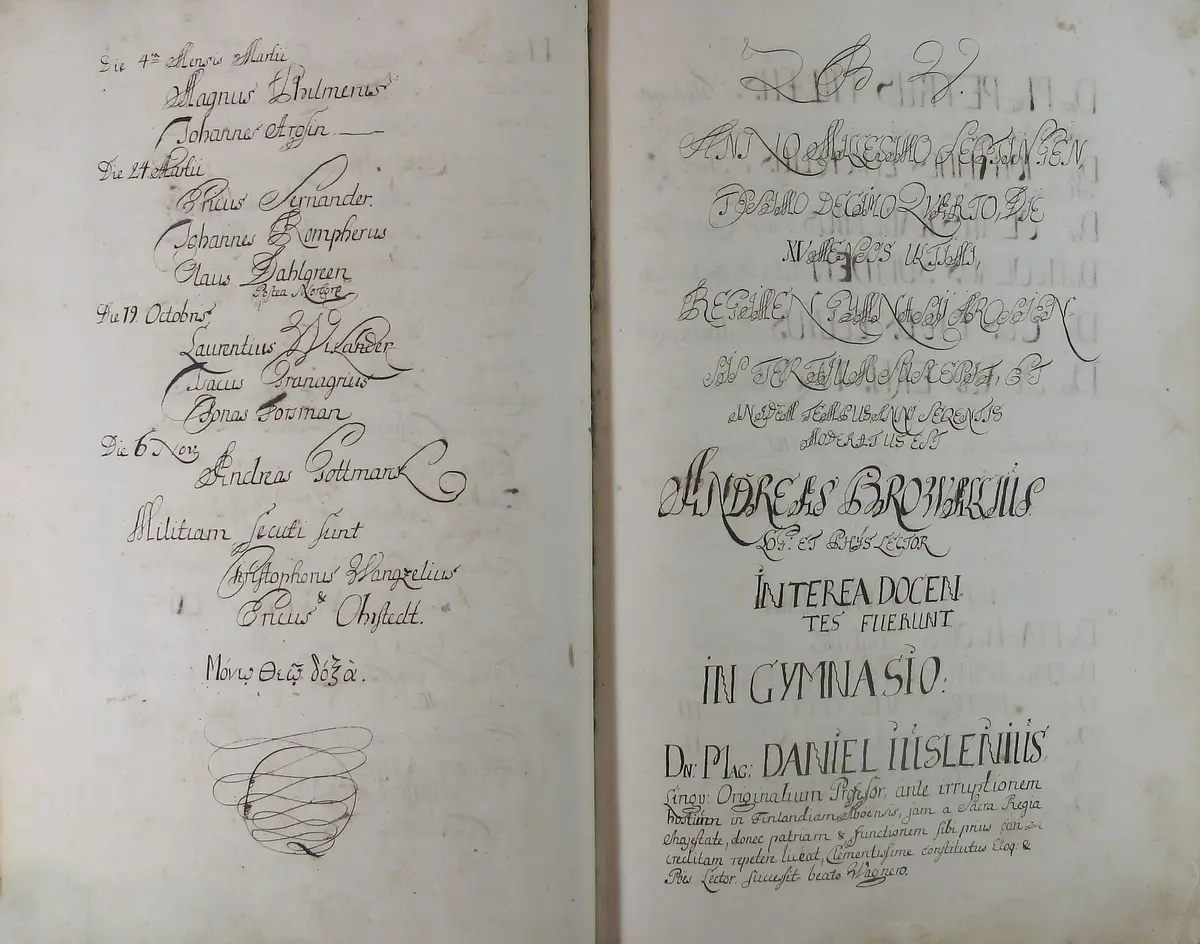 Die 4ta Mensis Martii
Magnus Philmenus
Johannes Arosin.
Die 24 Martii
Ericus Sernander.
Johannes Romphenus
Olaus Dahlgreen
Postea Norgre
Die 19. Octobris
Laurentius Wilander
Isacus Granagrius
Jonas Forsman
Die 6 Nov:
Andreas Gottman
Militiam secuti sunt
Christophorus Wangzelius
&
Ericus Ohrstedt.
Μόνῳ Θεῷ δόξα.
Q. B. V.
ANNO MILLESIMO SEPTINGEN
TESIMO DECIMO QUARTO, DIE
XV MENSIS IULII,
REGIMEN GYMNASII AROSIEN-
SIS TERTIUM SUSCEPIT, ET
IN IDEM TEMPUS ANNI SEQUENTIS
MODERATUS EST
ANDREAS BROWALLIUS
LOG: ET PHYS LECTOR
INTEREA DOCEN
TES FUERUNT
IN GYMNASIO:
DN: MAG: DANIEL IUSLENIUS,
Lingv: Originalium Professor, ante irruptionem
hostium in Finlandiam, Aboensis, jam a Sacra Regia
Majestate, donec patriam & functionem sibi prius con-
creditam repetere liceat, Clementissime constitutus Eloq: &
Poes Lector, successit beato Wagnero.